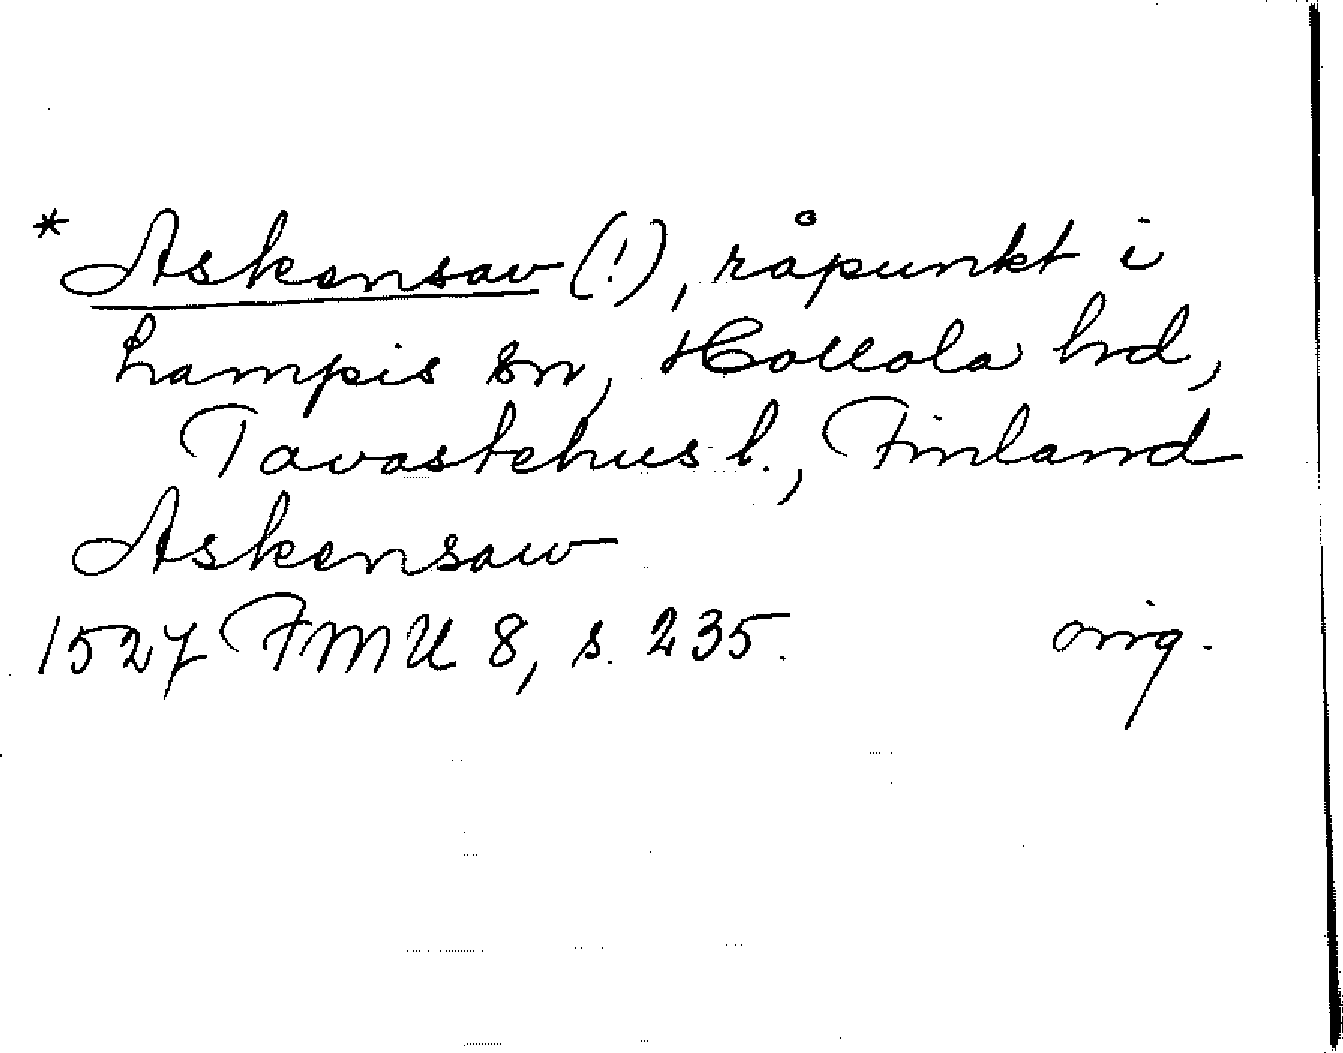 * Askensav (!), råpunkt i
Lampis sn, Hollola hd,
Tavastehus l., Finland
Askensaw
1527 FMU 8, s. 235. orig.